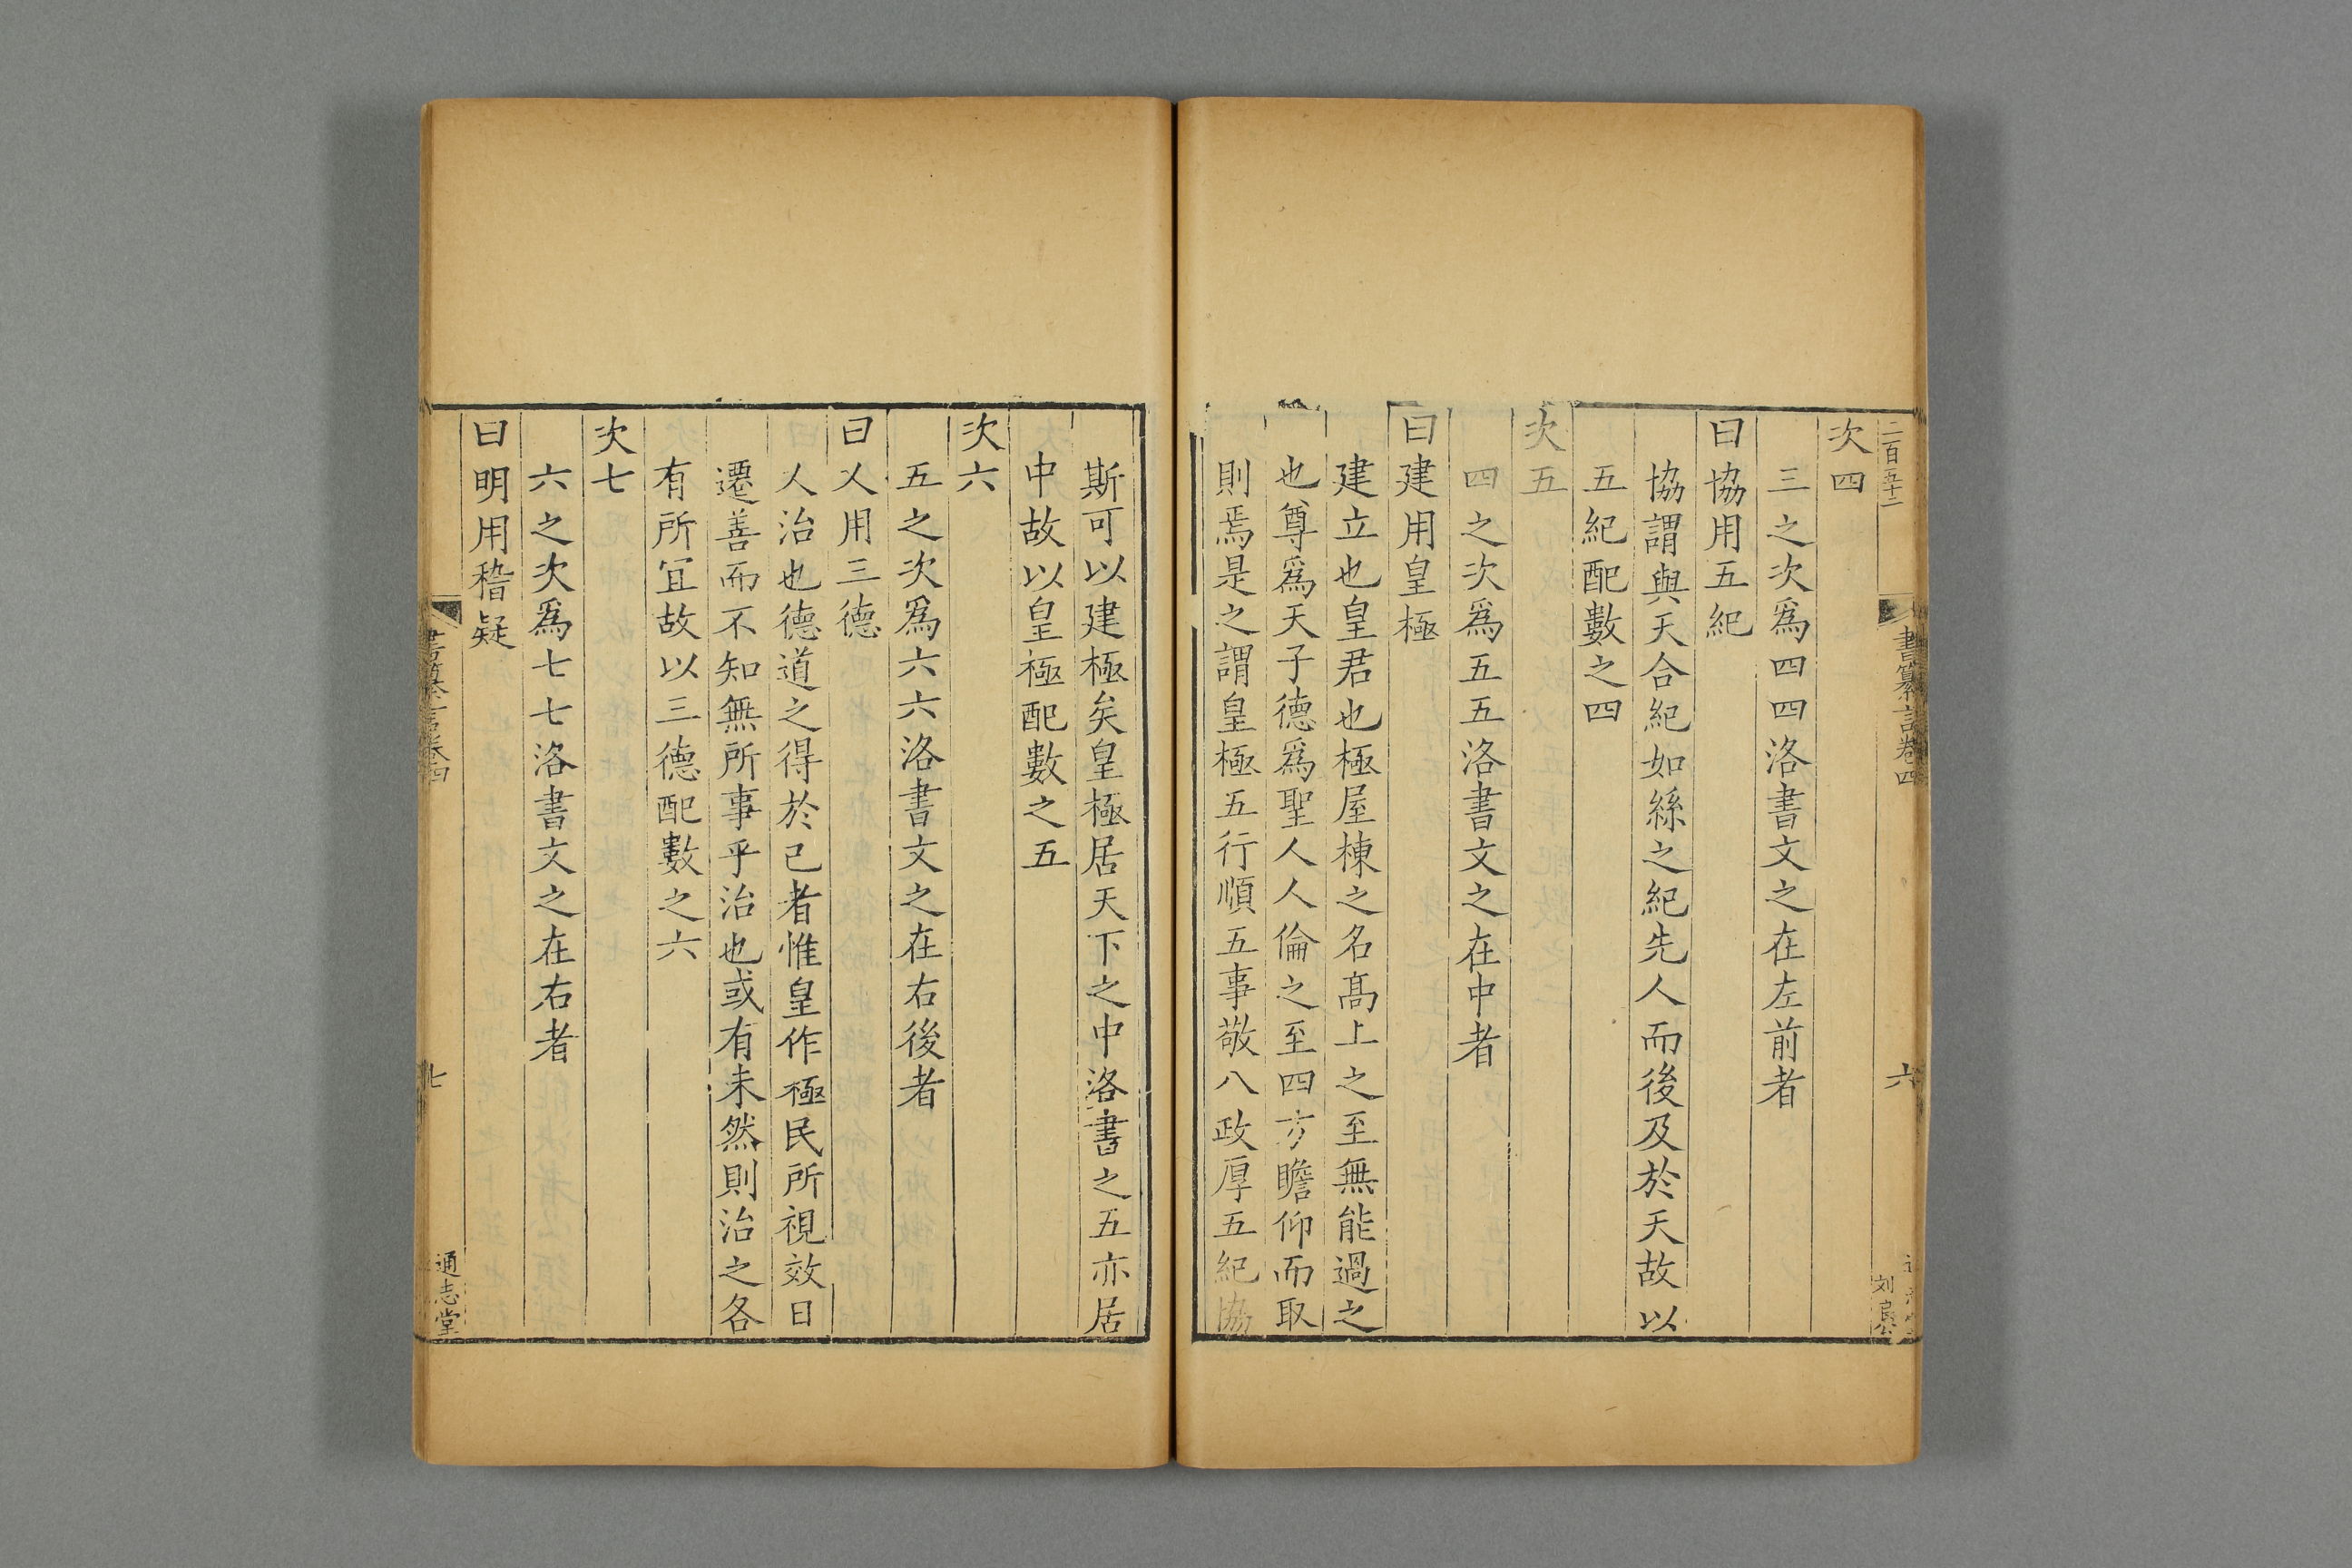 二百五十二
書纂言卷四
六
刘良公
次四
三之次爲四四洛書文之在左前者
曰協用五紀
協謂與天合紀如絲之紀先人而後及於天故以
五紀配數之四
次五
四之次爲五五洛書文之在中者
曰建用皇極
建立也皇君也極屋棟之名髙上之至無能過之
也尊爲天子德爲聖人人倫之至四方瞻仰而取
則焉是之謂皇極五行順五事敬八政厚五紀協
斯可以建極矣皇極居天下之中洛書之五亦居
中故以皇極配數之五
次六
五之次爲六六洛書文之在右後者
曰乂用三德
人治也德道之得於己者惟皇作極民所視效日
遷善而不知無所事乎治也或有未然則治之各
有所冝故以三德配數之六
次七
六之次爲七七洛書文之在右者
曰明用稽疑
書纂言卷四
七
通志堂